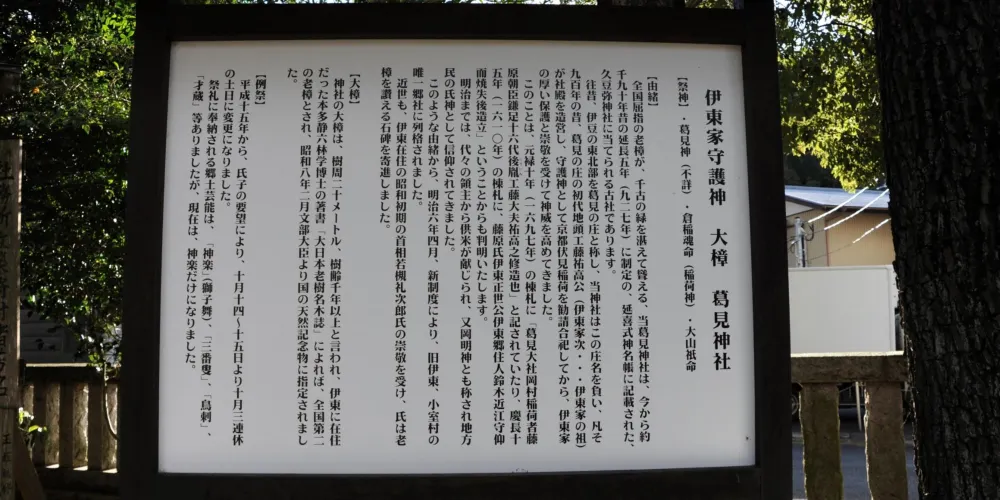 伊東家守護神　大樟　葛見神社
【祭神】・葛見神（不詳）・倉稲魂命（稲荷神）・大山祇命
【由緒】
全国屈指の老樟が、千古の緑を湛えて聳える、当葛見神社は、今から約
千九十年昔の延長五年（九二七年）に制定の、延喜式神名帳に記載された、
久豆弥神社に当てられる古社であります。
往昔、伊豆の東北部を葛見の庄と称し、当神社はこの庄名を負い、凡そ
九百年の昔、葛見の庄の初代地頭工藤祐高公（伊東家次・・・伊東家の祖）
が社殿を造営し、守護神として京都伏見稲荷を勧請合祀してから、伊東家
の厚い保護と崇敬を受けて神威を高めてきました。
このことは、元禄十年（一六九七年）の棟札に「葛見大社岡村稲荷者藤
原朝臣鎌足十六代後胤工藤大夫祐高之修造也」と記されていたり、慶長十
五年（一六一〇年）の棟札に、藤原氏伊東正世公伊東郷住人鈴木近江守仰
而焼失後造立」ということからも判明いたします。
明治までは、代々の領主から供米が献じられ、又岡明神とも称され地方
民の氏神として信仰されてきました。
このような由緒から、明治六年四月、新制度により、旧伊東、小室村の
唯一郷社に列格されました。
近世も、伊東在住の昭和初期の首相若槻礼次郎氏の崇敬を受け、氏は老
樟を讃える石碑を寄進しました。
【大樟】
神社の大樟は、樹周二十メートル、樹齢千年以上と言われ、伊東に在住
だった本多静六林学博士の著書「大日本老樹名木誌」によれば、全国第二
の老樟とされ、昭和八年二月文部大臣より国の天然記念物に指定されまし
た。
【例祭】
平成十五年から、氏子の要望により、十月十四～十五日より十月三連休
の土日に変更になりました。
祭礼に奉納される郷土芸能は、「神楽」獅子舞）、「三番叟」、「鳥刺」、
「才蔵」等ありましたが、現在は、神楽だけになりました。